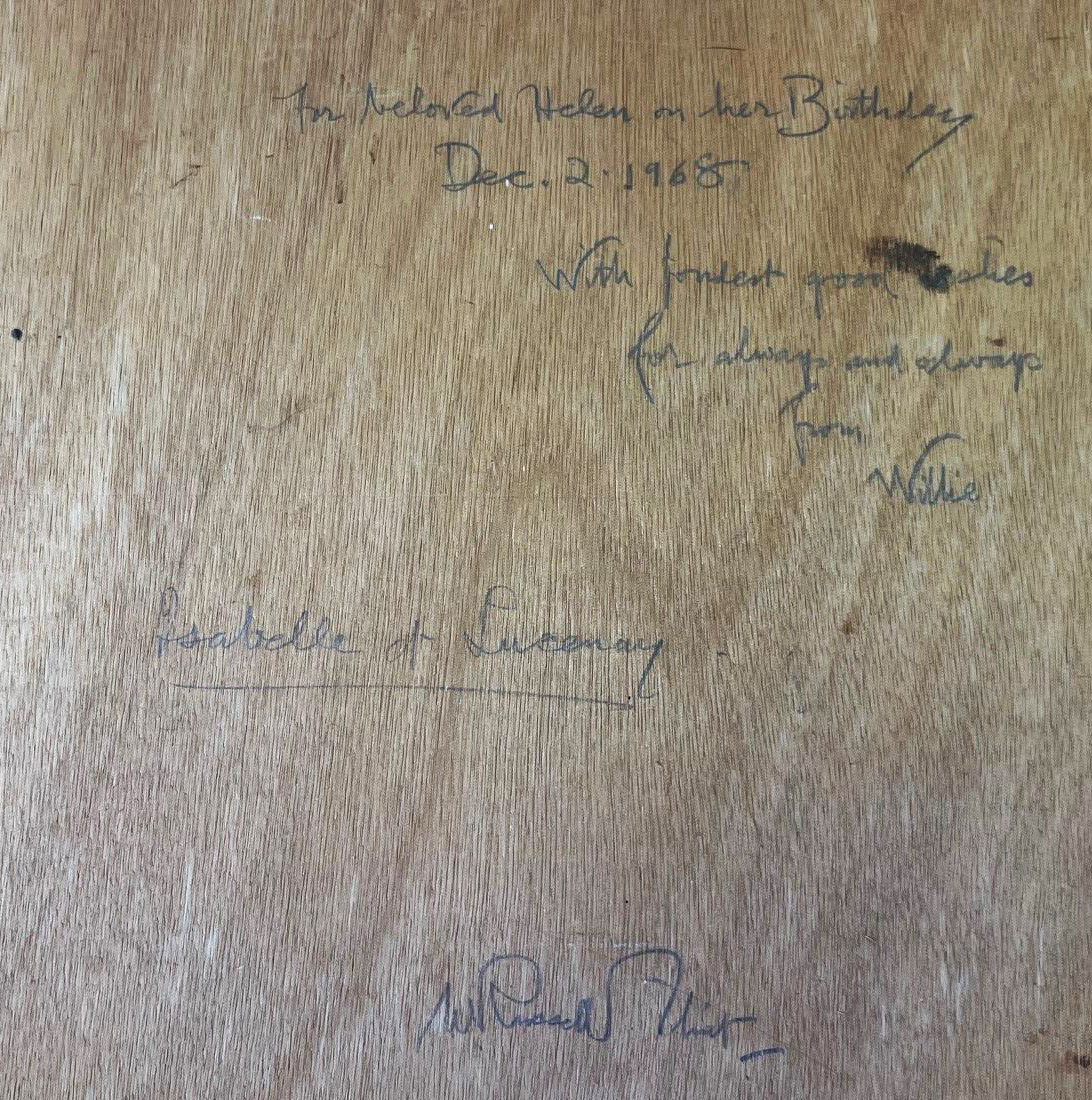 For beloved Helen on her Birthday
Dec. 2. 1968
With fondest good wishes
for always and always
from
Willie
Isabelle of Lucenay
W Russell Flint